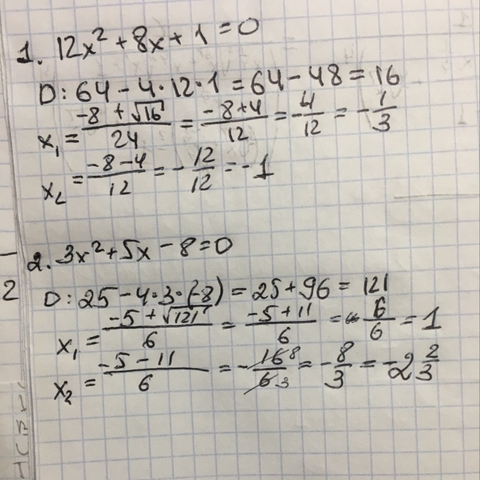 1. 12x² + 8x + 1 = 0
D: 64 - 4·12·1 = 64 - 48 = 16
x₁ = (-8 + √16)/24 = (-8+4)/12 = -4/12 = -1/3
x₂ = (-8-4)/12 = -12/12 = -1
2. 3x² + 5x - 8 = 0
2
D: 25 - 4·3·(-8) = 25 + 96 = 121
x₁ = (-5 + √121)/6 = (-5+11)/6 = 6/6 = 1
x₂ = (-5-11)/6 = -16 8/6 3 = -8/3 = -2 2/3